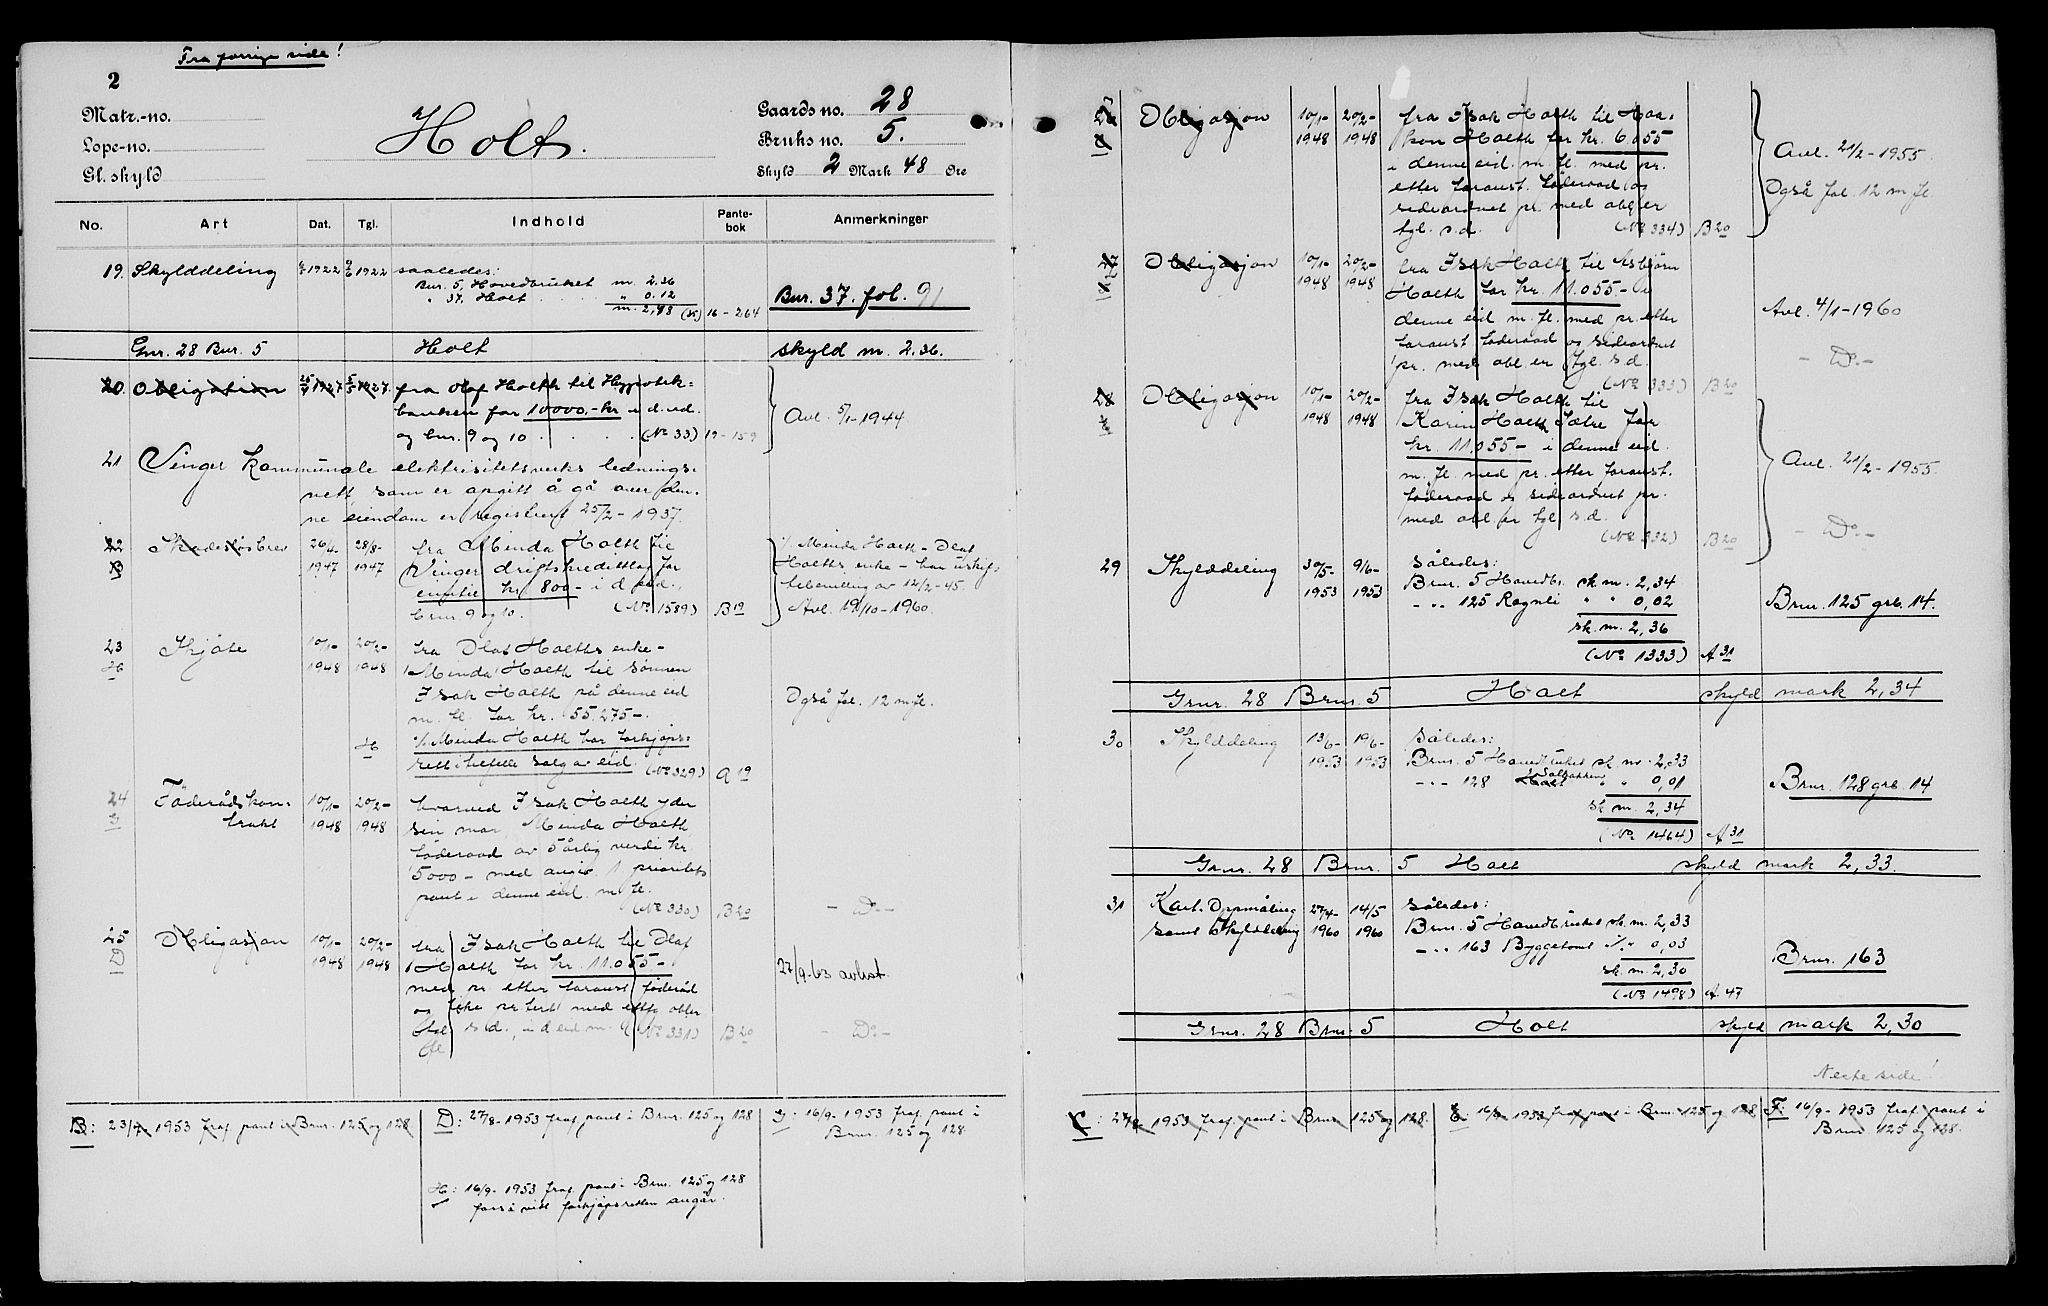 Fra forrige side!
2
Matr.-no.
Løpe-no.
Gl. skyld
Holt.
Gaards no. 28
Bruks no. 5.
Skyld 2 Mark 48 Øre
No. Art Dat. Tgl. Indhold Pante-bok Anmerkninger
19. Skylddeling 1922 1922 saaledes:
Bnr. 5, Hovedbruket m. 2.36
" 37, Holt " 0.12
m. 2,48 16-264
Bnr. 37. fol. 91
Gnr. 28 Bnr. 5 Holt skyld m. 2.36.
20. Obligation 1927 1927 fra Olaf Holth til Hypotek-
banken for 10000,- kr i d. eid.
og bnr. 9 og 10 (No 33) 19-159
Avl. 5/1-1944
21 Vinger kommunale elektrisitetsverks lednings-
nett, som er opgitt å gå over den-
ne eiendom er registrert 25/2-1937.
22 Skadesløsbrev 26/4- 1947 28/8- 1947 fra Minda Holth til
B Vinger driftskredittlag for
inntil kr. 800- i d. eid.,
bnr. 9 og 10. (No 1589) B 19
Minda Holth - Olaf
Holths enke - har uskif-
tebevilling av 12/2-45.
Avl. 19/10-1960.
23 Skjøte 10/1- 1948 20/2- 1948 fra Olaf Holths enke -
H Minda Holth til sønnen
Isak Holth på denne eid
m. fl. for kr. 55.275-.
Også fol. 12 m fl.
H Minda Holth har forkjøps-
rett i tilfelle salg av eid. (No 329) A 19
24 Föderådskon-
trakt 10/1- 1948 20/2- 1948 hvorved Isak Holth yder
sin mor, Minda Holth
föderaad av 5årlig verdi kr
5000- med angiv. 1 prioritets
pant i denne eid. m. fl.
(No 330) B 20 - Do -
25 Obligasjon 10/1- 1948 20/2- 1948 fra Isak Holth til Olaf
D Holth for kr. 11.055-
med pr etter foranst föderåd
s.d., i d eid m. fl (No 331) B 20 - Do -
27/9-63 avlst.
B: 23/9 1953 fraf. pant i Bnr. 125 og 128
D: 27/8-1953 fraf pant i Brnr. 125 og 128
H: 16/9-1953 fraf. pant i Brnr. 125 og 128
forsåvidt forkjøpsretten angår.
G: 16/9-1953 fraf. pant i
Brnr. 125 og 128.
26 Obligasjon 10/1- 1948 20/2- 1948 fra Isak Holth til Haa-
kon Holth for kr. 6.055
i denne eid. m. fl. med pr.
etter foranst. föderaad og
sideordnet pr. med obl er
tgl. s.d. (No 334) B 20
Avl. 21/2-1955.
Også fol. 12 m fl.
27 Obligasjon 10/1- 1948 20/2- 1948 fra Isak Holth til Asbjørn
Holth for kr. 11.055.- i
denne eid m. fl. med pr. etter
foranst föderaad og sideordnet
pr. med obl. er tgl. s.d.
(No 333) B 20
Avl. 4/1-1960
- Do -
28 Obligasjon 10/1- 1948 20/2- 1948 fra Isak Holth til
Karin Holth Sætre for
kr. 11.055- i denne eid.
m. fl. med pr. etter foranst.
föderaad og sideordnet pr.
med obl er tgl s.d.
(No 332) B 20
Avl. 21/2-1955.
- Do -
29 Skylddeling 30/5- 1953 9/6- 1953 således:
Brnr. 5 Hovedbr. sk m. 2,34
- " - 125 Rognli " " 0,02
sk. m. 2,36
(No 1333) A 31
Brnr. 125 grb. 14.
Grnr. 28 Brnr. 5 Holt skyld mark 2,34
30 Skylddeling 13/6- 1953 19/6- 1953 således:
Brnr. 5 Hovedbruket sk m. 2,33
- " - 128 Solbakken " 0,01
sk m. 2,34
(No 1464) A 31
Brnr. 128 grb. 14
Grnr. 28 Brnr. 5 Holt skyld mark 2,33.
31 Kart. Oppmåling
samt Skylddeling 27/4- 1960 14/5 1960 således:
Brnr. 5 Hovedbruket sk. m. 2,33
- " - 163 Byggetomt " 0,03
sk. m. 2,30
(No 1498) A 47
Brnr. 163
Grnr. 28 Brnr. 5 Holt skyld mark 2,30
Neste side!
C: 27/8-1953 fraf. pant i Brnr 125 og 128.
E: 16/9-1953 fraf pant i Brnr 125 og 128
F: 16/9-1953 fraf. pant i
Brnr. 125 og 128.